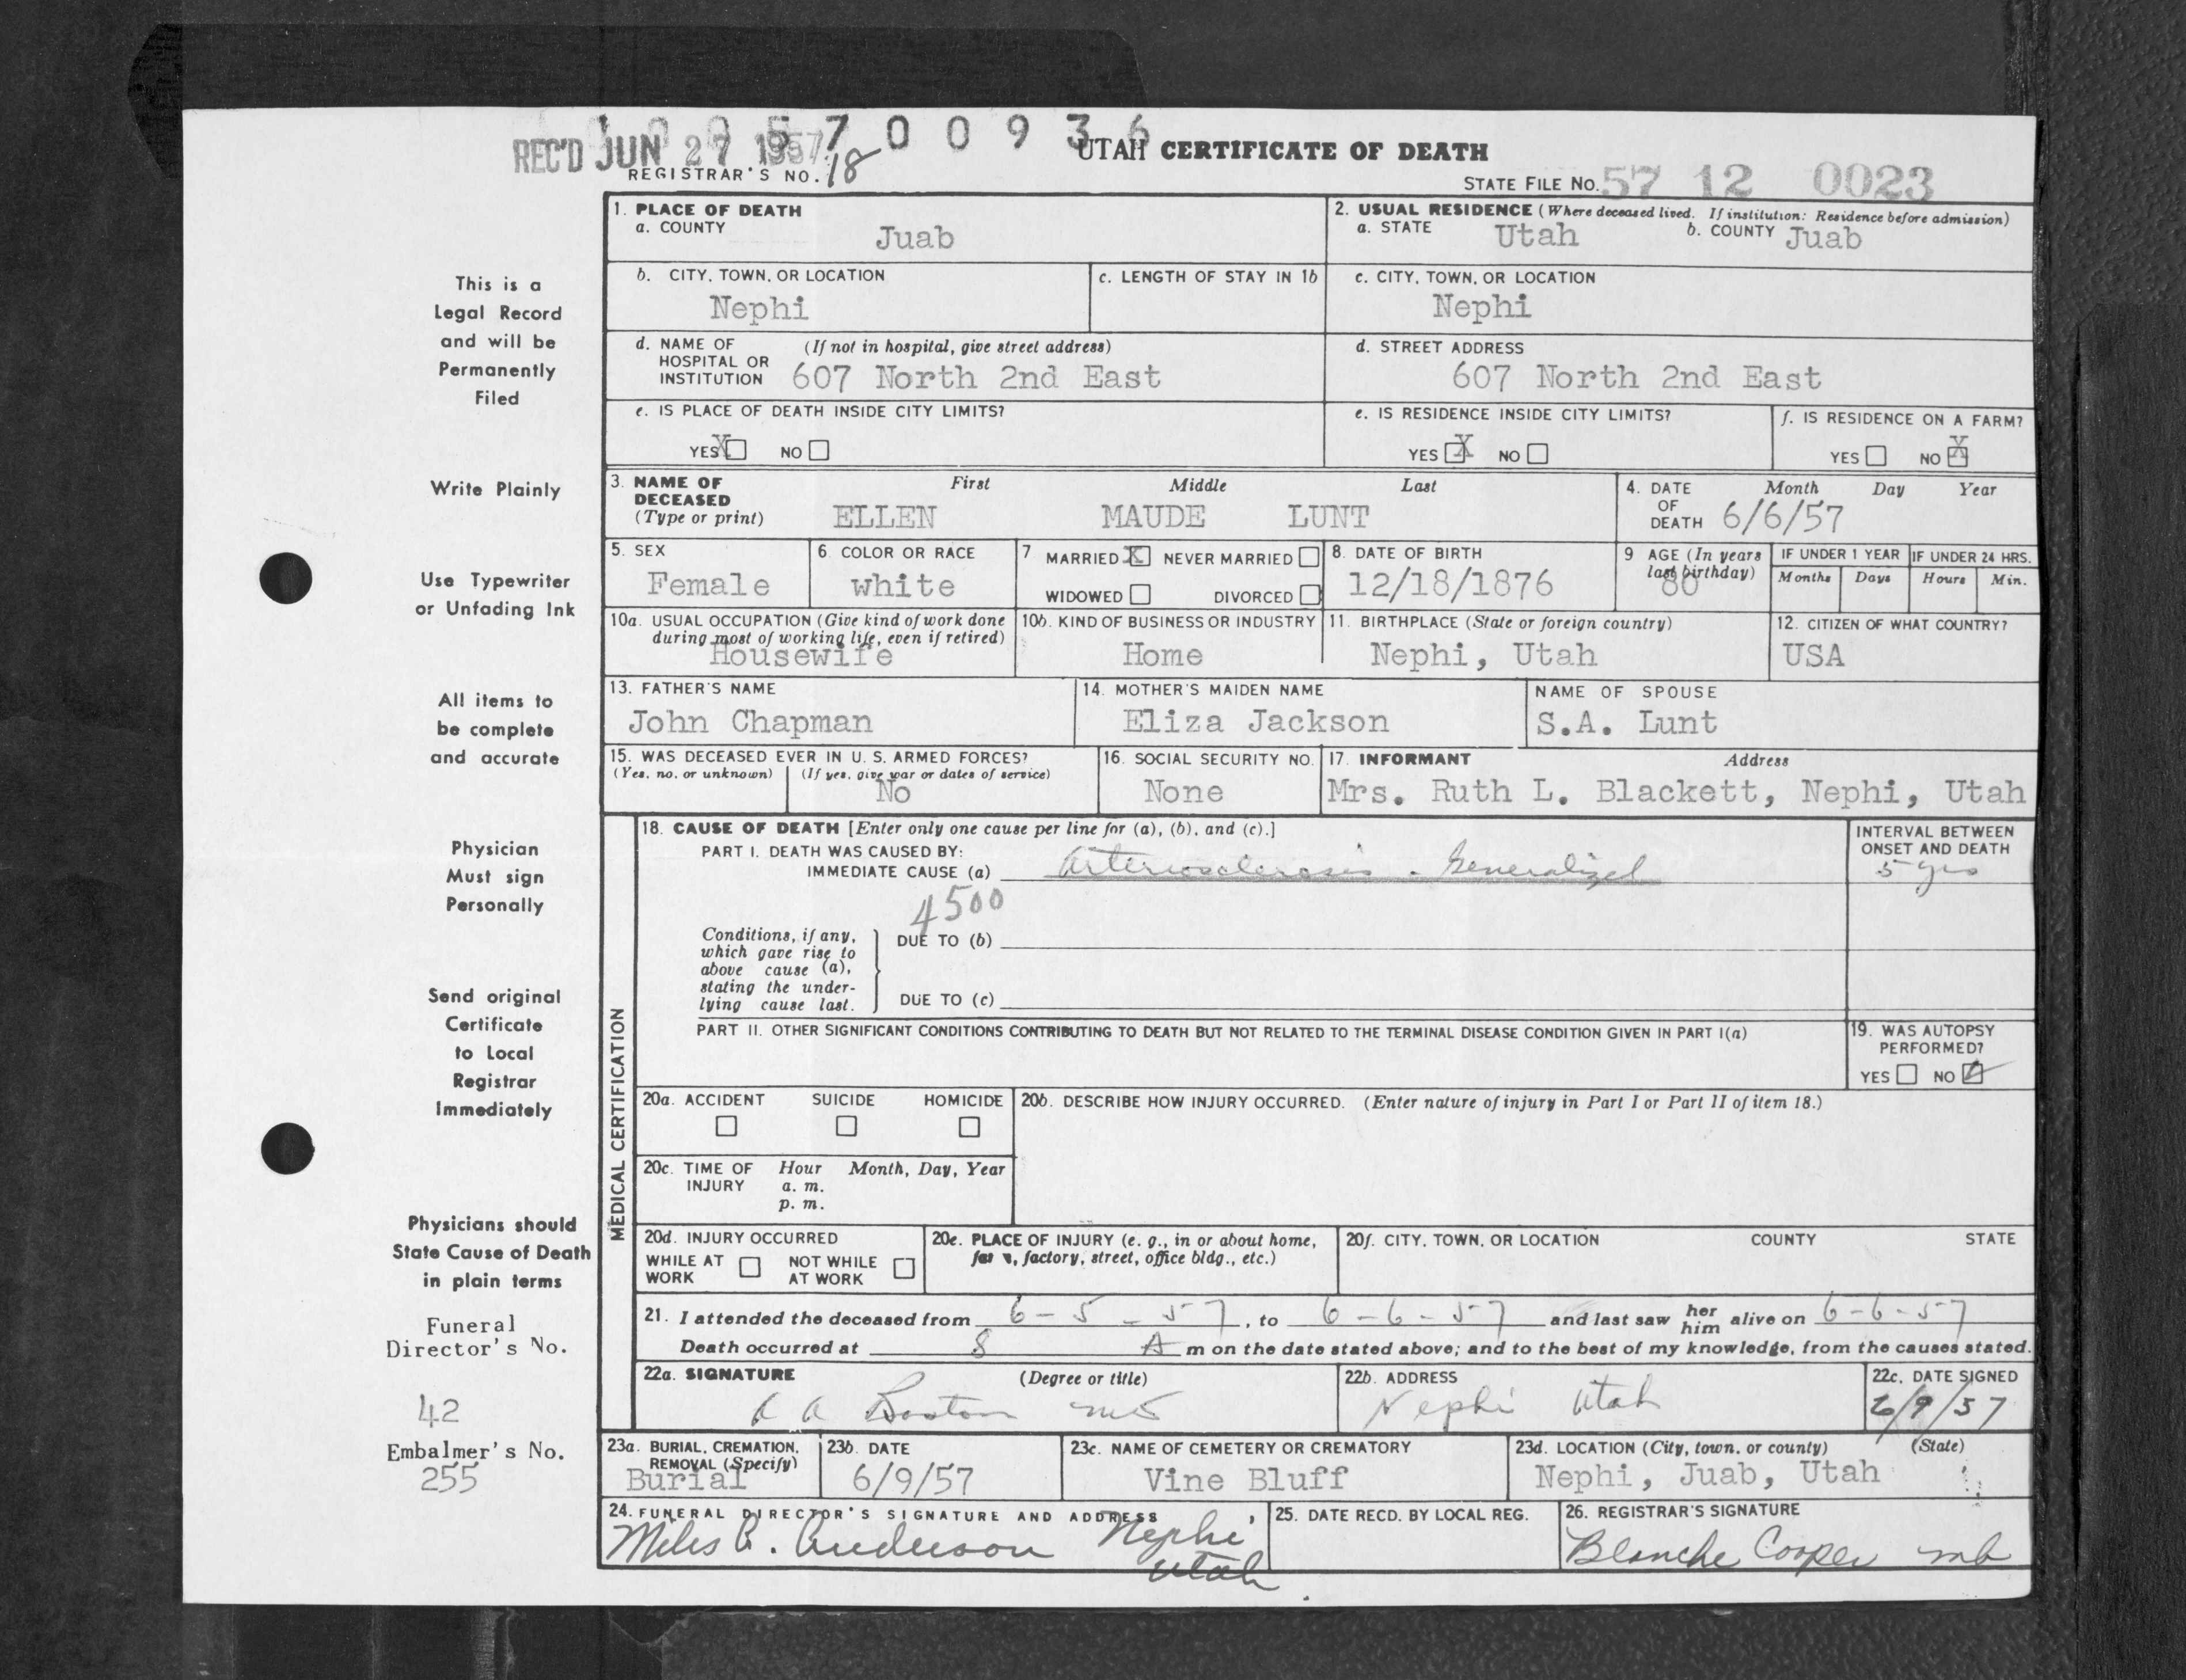 1005700936
REC'D JUN 27 1957
UTAH CERTIFICATE OF DEATH
REGISTRAR'S NO. 18
STATE FILE NO. 57 12 0023
This is a
Legal Record
and will be
Permanently
Filed
Write Plainly
Use Typewriter
or Unfading Ink
All items to
be complete
and accurate
Physician
Must sign
Personally
Send original
Certificate
to Local
Registrar
Immediately
Physicians should
State Cause of Death
in plain terms
Funeral
Director's No.
42
Embalmer's No.
255
1. PLACE OF DEATH
a. COUNTY Juab
2. USUAL RESIDENCE (Where deceased lived. If institution: Residence before admission)
a. STATE Utah b. COUNTY Juab
b. CITY, TOWN, OR LOCATION
Nephi
c. LENGTH OF STAY IN 1b
c. CITY, TOWN, OR LOCATION
Nephi
d. NAME OF (If not in hospital, give street address)
HOSPITAL OR
INSTITUTION 607 North 2nd East
d. STREET ADDRESS
607 North 2nd East
e. IS PLACE OF DEATH INSIDE CITY LIMITS?
YES X NO
e. IS RESIDENCE INSIDE CITY LIMITS?
YES X NO
f. IS RESIDENCE ON A FARM?
YES NO X
3. NAME OF First Middle Last
DECEASED
(Type or print) ELLEN MAUDE LUNT
4. DATE Month Day Year
OF
DEATH 6/6/57
5. SEX
Female
6. COLOR OR RACE
white
7 MARRIED X NEVER MARRIED
WIDOWED DIVORCED
8. DATE OF BIRTH
12/18/1876
9 AGE (In years
last birthday)
80
IF UNDER 1 YEAR
Months Days
IF UNDER 24 HRS.
Hours Min.
10a. USUAL OCCUPATION (Give kind of work done
during most of working life, even if retired)
Housewife
10b. KIND OF BUSINESS OR INDUSTRY
Home
11. BIRTHPLACE (State or foreign country)
Nephi, Utah
12. CITIZEN OF WHAT COUNTRY?
USA
13. FATHER'S NAME
John Chapman
14. MOTHER'S MAIDEN NAME
Eliza Jackson
NAME OF SPOUSE
S.A. Lunt
15. WAS DECEASED EVER IN U. S. ARMED FORCES?
(Yes, no, or unknown) (If yes, give war or dates of service)
No
16. SOCIAL SECURITY NO.
None
17. INFORMANT Address
Mrs. Ruth L. Blackett, Nephi, Utah
MEDICAL CERTIFICATION
18. CAUSE OF DEATH [Enter only one cause per line for (a), (b), and (c).]
PART I. DEATH WAS CAUSED BY:
IMMEDIATE CAUSE (a) Arteriosclerosis - Generalized
INTERVAL BETWEEN
ONSET AND DEATH
5 yrs
4500
Conditions, if any,
which gave rise to
above cause (a),
stating the under-
lying cause last.
DUE TO (b)
DUE TO (c)
PART II. OTHER SIGNIFICANT CONDITIONS CONTRIBUTING TO DEATH BUT NOT RELATED TO THE TERMINAL DISEASE CONDITION GIVEN IN PART I(a)
19. WAS AUTOPSY
PERFORMED?
YES NO ✓
20a. ACCIDENT SUICIDE HOMICIDE
20b. DESCRIBE HOW INJURY OCCURRED. (Enter nature of injury in Part I or Part II of item 18.)
20c. TIME OF Hour Month, Day, Year
INJURY a. m.
p. m.
20d. INJURY OCCURRED
WHILE AT WORK NOT WHILE AT WORK
20e. PLACE OF INJURY (e. g., in or about home,
farm, factory, street, office bldg., etc.)
20f. CITY, TOWN, OR LOCATION COUNTY STATE
21. I attended the deceased from 6-5-57, to 6-6-57 and last saw her him alive on 6-6-57
Death occurred at 8 A m on the date stated above; and to the best of my knowledge, from the causes stated.
22a. SIGNATURE (Degree or title)
22b. ADDRESS
Nephi Utah
22c. DATE SIGNED
6/9/57
23a. BURIAL, CREMATION,
REMOVAL (Specify)
Burial
23b. DATE
6/9/57
23c. NAME OF CEMETERY OR CREMATORY
Vine Bluff
23d. LOCATION (City, town, or county) (State)
Nephi, Juab, Utah
24. FUNERAL DIRECTOR'S SIGNATURE AND ADDRESS
Miles A. Anderson Nephi
Utah
25. DATE RECD. BY LOCAL REG.
26. REGISTRAR'S SIGNATURE
Blanche Cooper